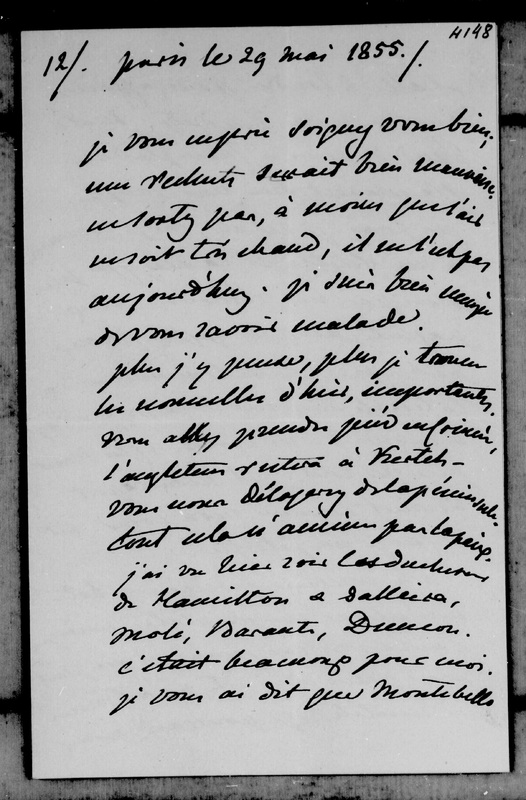 4148
12/. paris le 29 mai 1855./.
je vous en prie soignez vous bien,
une rechute serait bien mauvaise.
ne sortez pas, à moins que l'air
ne soit très chaud, il ne l'est pas
aujourd'huy. je suis bien
de vous savoir malade.
plus j'y pense, plus je trouve
les nouvelles d'hier, importantes.
vous allez prendre pied en Crimée,
l'angleterre restera à Kertch -
vous nous délogerez de la péninsule.
tout cela n'amène pas la paix.
j'ai vu hier soir les duchesses
de Hamilton & d'albuera,
Molé, Barante, Dumon.
c'était beaucoup pour moi.
je vous ai dit que Montebello